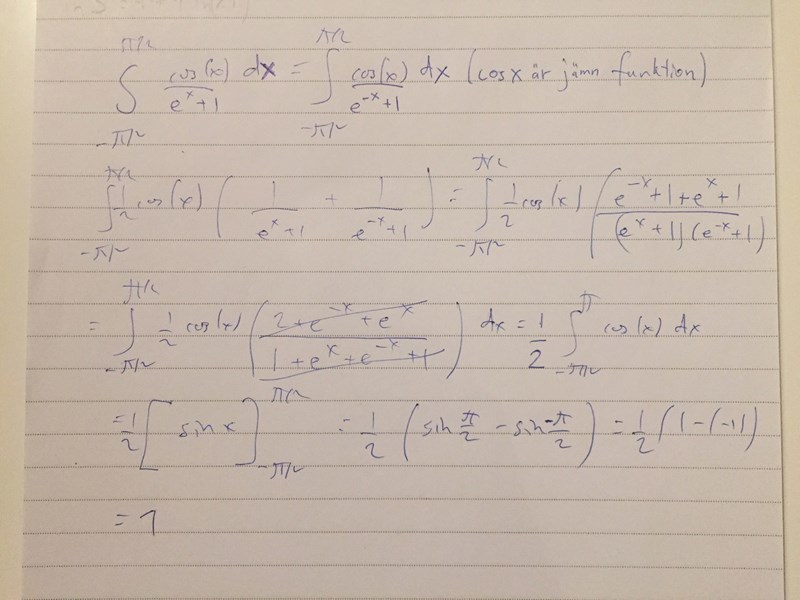 ∫_{-π/2}^{π/2} cos(x)/(e^x+1) dx = ∫_{-π/2}^{π/2} cos(x)/(e^{-x}+1) dx (cosx är jämn funktion)
∫_{-π/2}^{π/2} 1/2 cos(x) ( 1/(e^x+1) + 1/(e^{-x}+1) ) = ∫_{-π/2}^{π/2} 1/2 cos(x) ( (e^{-x}+1+e^x+1)/((e^x+1)(e^{-x}+1)
= ∫_{-π/2}^{π/2} 1/2 cos(x) ( (2+e^{-x}+e^x)/(1+e^x+e^{-x}+1) ) dx = 1/2 ∫_{-π/2}^{π} cos(x) dx
= 1/2 [ sin x ]_{-π/2}^{π/2} = 1/2 ( sin π/2 - sin -π/2 ) = 1/2 ( 1-(-1)
= 1